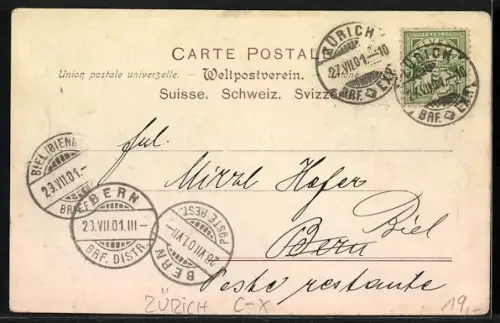 CARTE POSTALE
Union postale universelle. Weltpostverein.
Suisse. Schweiz. Svizzera
ZÜRICH
27.VII.01.-10
BRF. EXP.
ZÜRICH
27.VII.01.-10
BRF. EXP.
BIEL (BIENNE)
29.VII.01-
BERN
29.VII.01.III-
BRF. DISTR.
BERN
28.VII.01.VII-
POSTE REST.
Hofer
Biel
Bern
Poste restante
ZÜRICH C-X
19,-